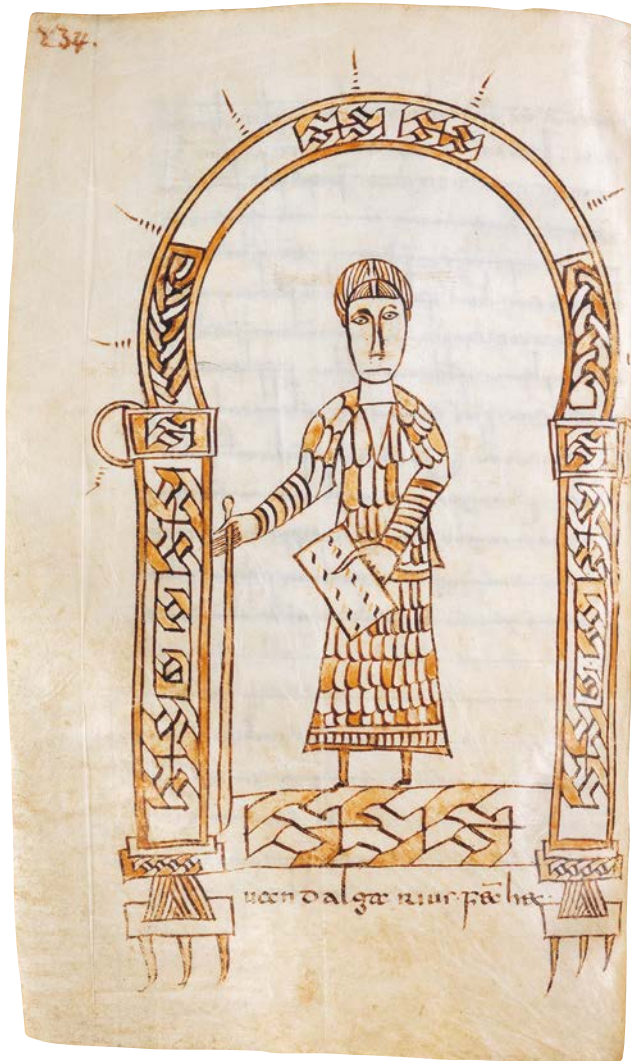 234.
uandalgarius fec hec